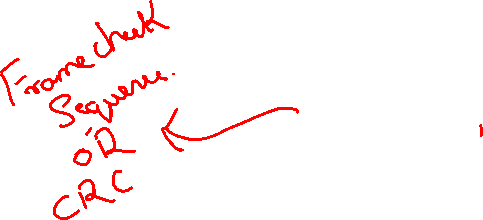 Frame check
Sequence.
OR
CRC